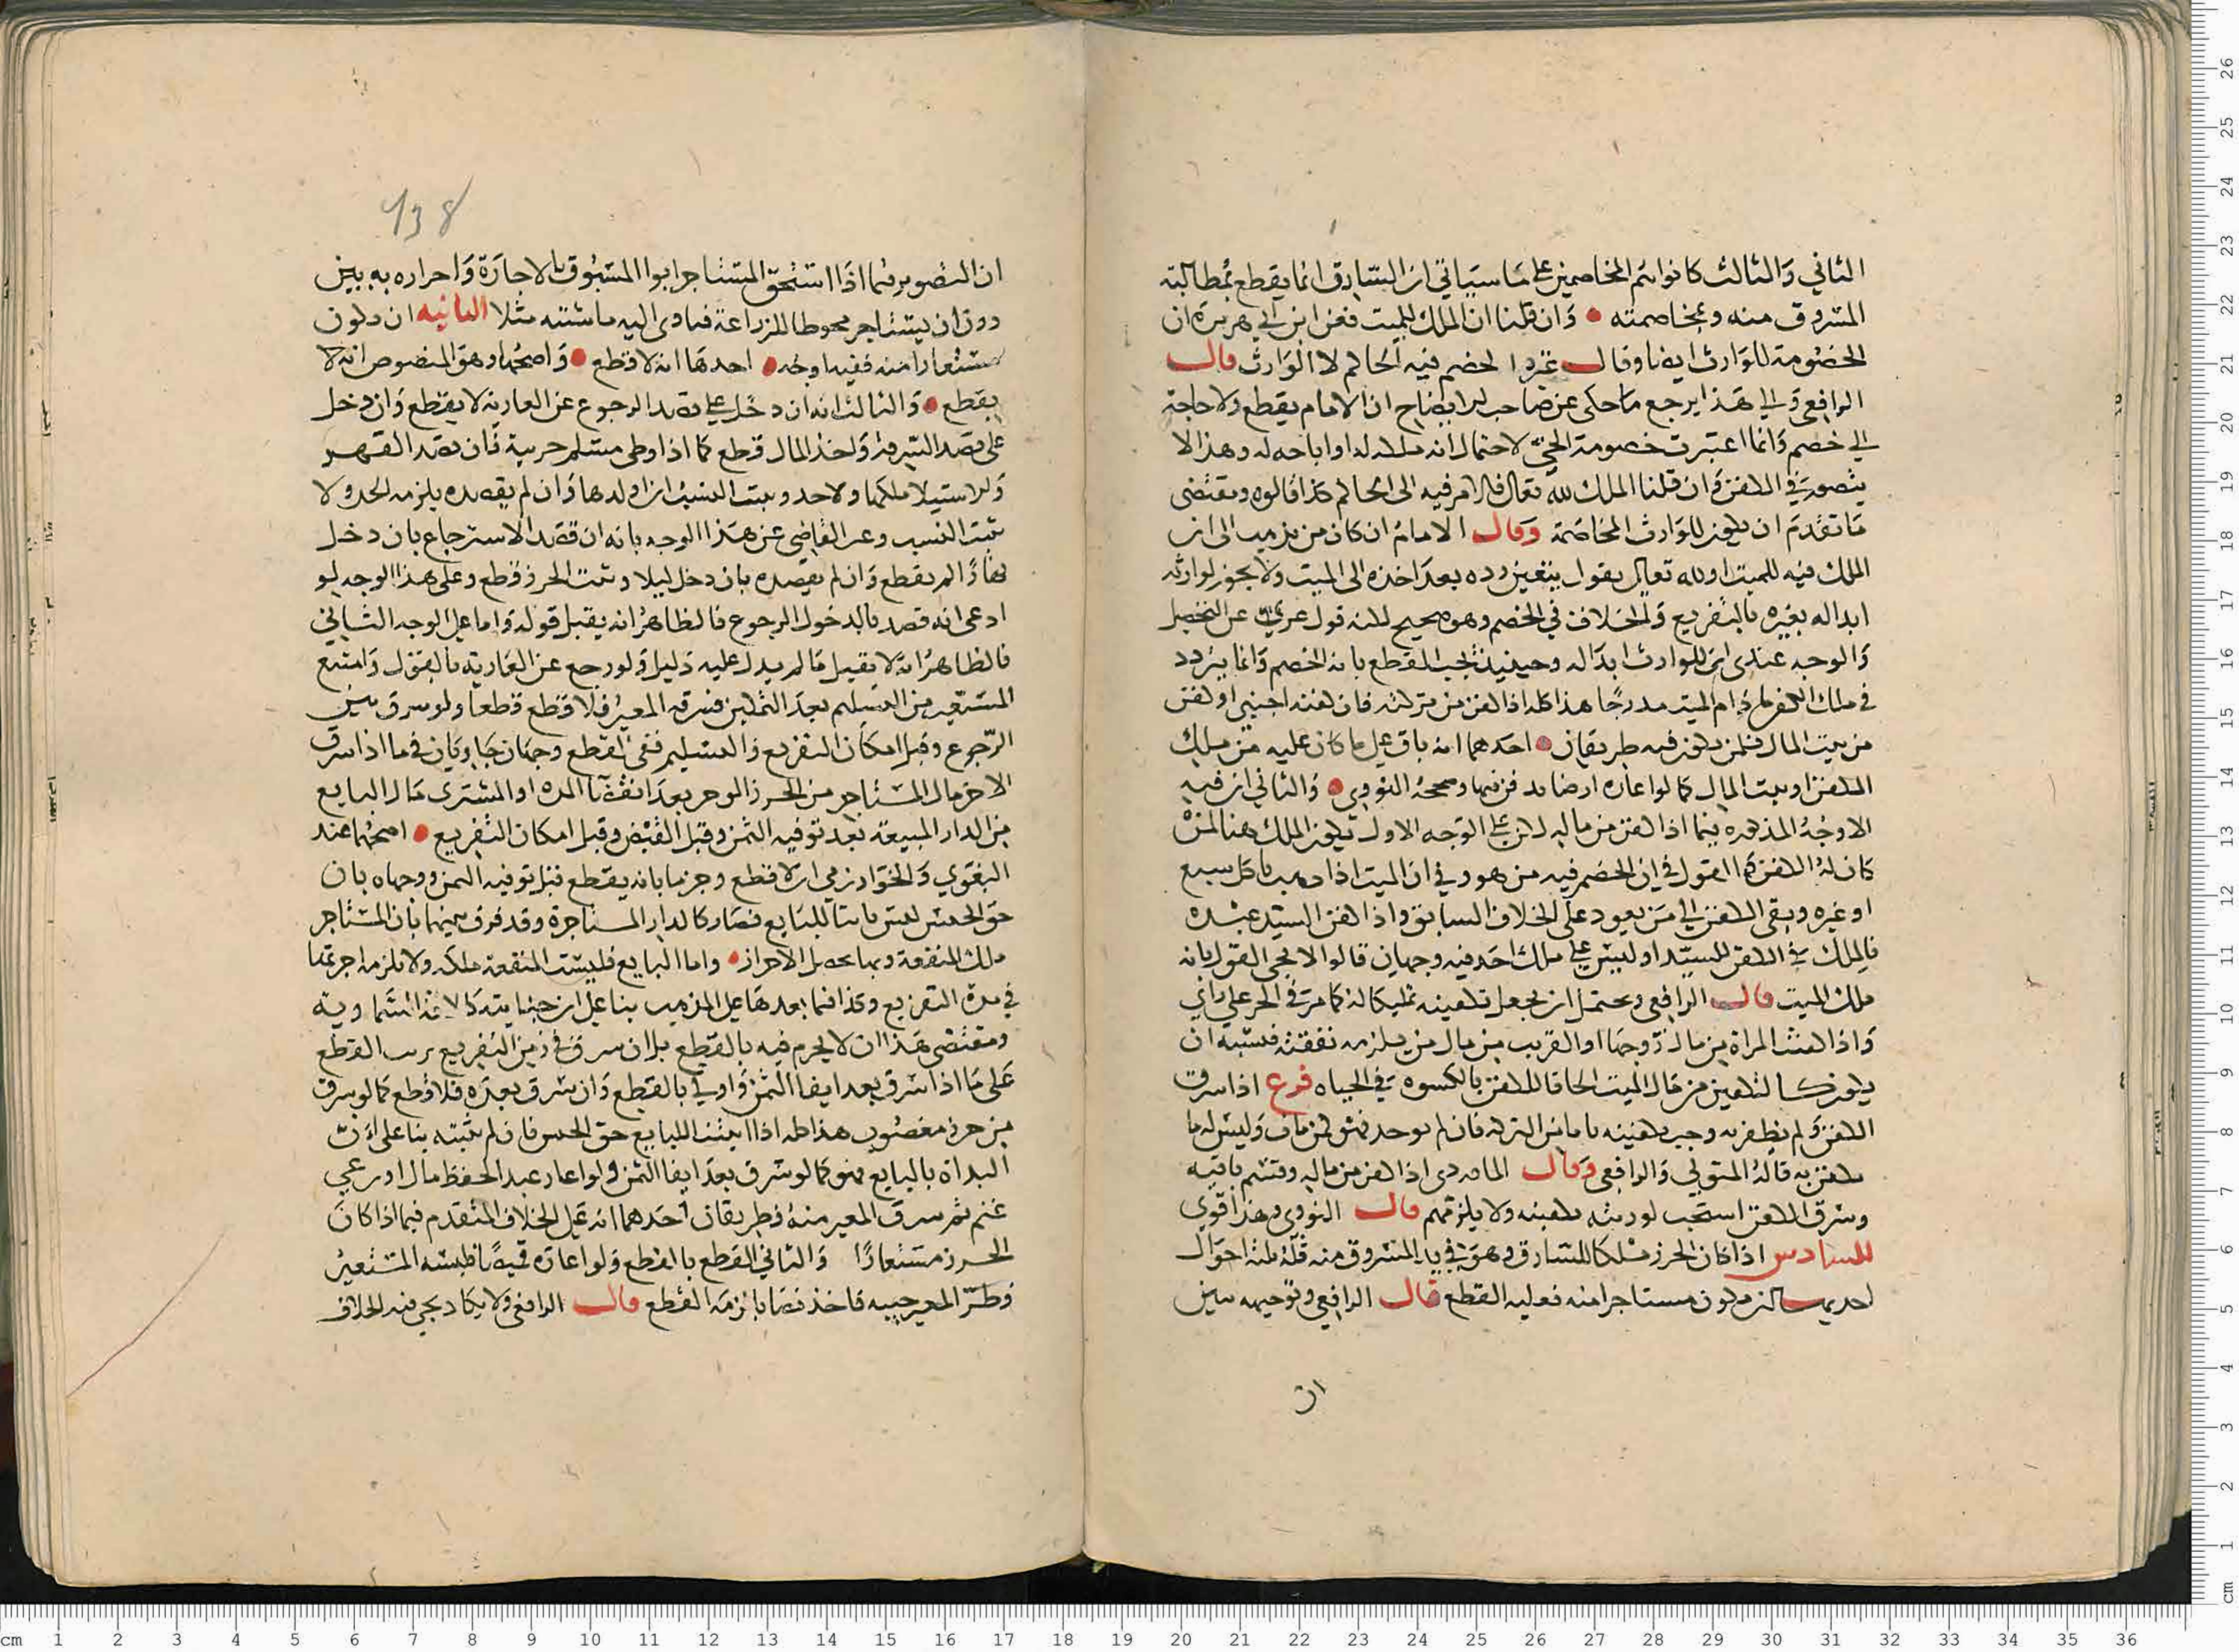 الثاني والثالث كانوا هم المخاصمين على ما سياتي ان السارق انما يقطع بمطالبة
المسروق منه وبمخاصمته وان قلنا ان الملك للميت فعن ابن ابي هريرة ان
الخصومة للوارث ايضا وقال غيره الخصم فيه الحاكم لا الوارث قال
الرافعي والى هذا يرجع ما حكى عن صاحب الايضاح ان الامام يقطع ولا حاجة
الى خصم وانما اعتبرت خصومة الحي لاحتمال انه ملكه له او اباحه له وهذا لا
يتصور في الكفن وان قلنا الملك لله تعالى فالامر فيه الى الحاكم كذا قالوه ومقتضى
ما تقدم ان يكون للوارث المخاصمة وقال الامام ان كان من يذهب الى ان
الملك فيه للميت او لله تعالى يقول يتعين رده بعد اخذه الى الميت ولا يجوز لوارثه
ابداله بغيره فالتفريع والخلاف في الخصم وهو صحيح لكنه قول عري عن التحصيل
والوجه عندي ان للوارث ابداله وحينئذ يجب القطع بانه الخصم وانما يتردد
في ملك الكفن ما دام الميت مدرجا هذا كله اذا كفن من تركته فان كفنه اجنبي او كفن
من بيت المال فلمن يكون فيه طريقان احدهما انه باق على ما كان عليه من ملك
المكفن او بيت المال كما لو اعاره ارضا يدفن فيها وصححه النووي والثاني ان فيه
الاوجه المذكورة فيما اذا كفن من ماله لكن على الوجه الاول يكون الملك هنا لمن
كان له الكفن كما القول في ان الخصم فيه من هو وفي ان الميت اذا ذهب باكل سبع
او غيره وبقي الكفن الى من يعود على الخلاف السابق واذا كفن السيد عبده
فالملك في الكفن للسيد او ليس على ملك احد فيه وجهان قالوا لا يجي القول بانه
ملك الميت قال الرافعي ويحتمل ان يجعل تكفينه تمليكا له كما مر في الحر على راي
واذا كفنت المراة من مال زوجها او القريب من مال من يلزمه نفقته فيشبه ان
يكون كالتكفين من مال الميت الحاقا للكفن بالكسوة في الحياه فرع اذا سرق
الكفن ولم يظفر به وجب تكفينه ثانيا من التركة فان لم يوجد فهو كمن مات وليس له ما
يكفن به قاله المتولي والرافعي وقال الماوردي اذا كفن من ماله وقسم باقيه
وسرق الكفن استحب لورثته تكفينه ولا يلزمهم قال النووي وهذا قوي
السادس اذا كان الحرز ملكا للسارق وهو في يد المسروق منه فله ثلثة احوال
احديها ان يكون مستاجرا منه فعليه القطع قال الرافعي وتوجيهه يبين
ان
٧٣٨
ان التصوير فيما اذا استحق المستاجر ايوا المسروق بالاجارة واحرازه به يبين
دون ان يستاجر محوطا للزراعة فياوي اليه ماشيته مثلا الثانية ان يكون
مستعارا منه ففيه اوجه احدها انه لا قطع واصحها وهو المنصوص انه لا
يقطع والثالث انه ان دخل على قصد الرجوع عن العارية لا يقطع وان دخل
على قصد السرقة واخذ المال قطع كما اذا وطي مسلم حربية فان قصد القهر
والاستيلا ملكها ولا حد ويثبت النسب ان اولدها وان لم يقصده يلزمه الحد ولا
يثبت النسب وعبر القاضي عن هذا الوجه بانه ان قصد الاسترجاع بان دخل
نهارا لم يقطع وان لم يقصده بان دخل ليلا وثقب الحرز قطع وعلى هذا الوجه لو
ادعى انه قصد بالدخول الرجوع فالظاهر انه يقبل قوله واما على الوجه الثاني
فالظاهر انه لا يقبل ما لم يدل عليه دليل ولو رجع عن العارية بالقول وامتنع
المستعير من التسليم بعد التمكين فسرقه المعير فلا قطع قطعا ولو سرق بين
الرجوع وقبل امكان التفريغ والتسليم ففي القطع وجهان جاريان فيما اذا سرق
الاخر مال المستاجر من الحرز الموجر بعد انقضا المده او المشترى مال البايع
من الدار المبيعة بعد توفية الثمن وقبل القبض وقبل امكان التفريغ اصحهما عند
البغوي والخوارزمي ان لا قطع وجزما بانه يقطع قبل توفية الثمن ووجهاه بان
حق الحبس ليس ثابتا للبايع فصار كالدار المستاجرة وقد فرق بينهما بان المستاجر
ملك المنفعة وبها يحصل الاحراز واما البايع فليست المنفعة ملكه ولا يلزمه اجرتها
في مدة التفريغ وكذا فيما بعدها على المذهب بنا على ان جنايته كالافة السماوية
ومقتضى هذا ان لا يجزم فيه بالقطع بل ان سرق في زمن التفريغ ترتب القطع
على ما اذا سرق بعد ايفا الثمن واولى بالقطع وان سرق بعده فلا قطع كما لو سرق
من حرز مغصوب هذا كله اذا اثبتنا للبايع حق الحبس فان لم نثبته بنا على ان
البداة بالبايع فهو كما لو سرق بعد ايفا الثمن ولو اعار عبدا لحفظ مال او رعي
غنم ثم سرق المعير منه فطريقان احدهما انه على الخلاف المتقدم فيما اذا كان
الحرز مستعارا والثاني القطع بالقطع ولو اعاره قميصا فلبسه المستعير
وطر المعير جيبه فاخذ نصابا لزمه القطع قال الرافعي ولا يكاد يجي فيه الخلاف